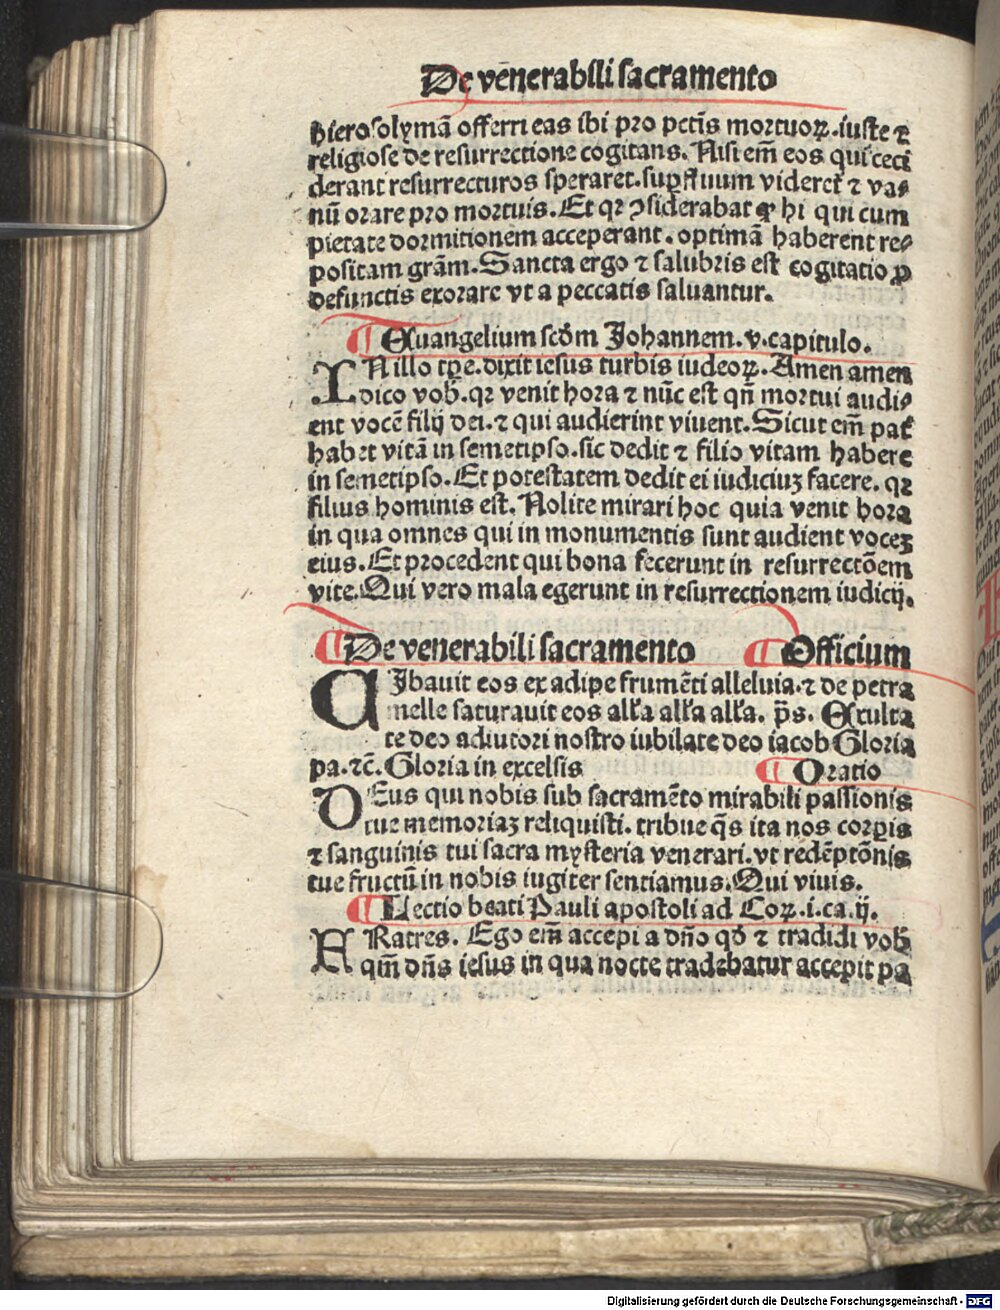 De venerabili sacramento
hierosolymã offerri eas ibi pro pctĩs mortuoꝝ. iuste ⁊
religiose de resurrectione cogitans. Nisi em̃ eos qui ceci
derant resurrecturos speraret. suꝑfluum videret̃ ⁊ va⸗
nũ orare pro mortuis. Et qꝛ ꝯsiderabat ꝙ hi qui cum
pietate dormitionem acceperant. optimã haberent re⸗
positam grãm. Sancta ergo ⁊ salubris est cogitatio ꝓ
defunctis exorare vt a peccatis saluantur.
¶ Euangelium scd̃m Johannem. v. capitulo.
IN illo tp̃e. dixit iesus turbis iudeoꝝ. Amen amen
dico vob̃. qꝛ venit hora ⁊ nũc est qñ mortui audi⸗
ent vocẽ filij dei. ⁊ qui audierint viuent. Sicut em̃ pat̃
habet vitã in semetipso. sic dedit ⁊ filio vitam habere
in semetipso. Et potestatem dedit ei iudiciuꝫ facere. qꝛ
filius hominis est. Nolite mirari hoc quia venit hora
in qua omnes qui in monumentis sunt audient voceꝫ
eius. Et procedent qui bona fecerunt in resurrectõem
vite. Qui vero mala egerunt in resurrectionem iudicij.
¶ De venerabili sacramento ¶ Officium
CJbauit eos ex adipe frumẽti alleluia. ⁊ de petra
melle saturauit eos all'a all'a all'a. p̃s. Exulta
te deo adiutori nostro iubilate deo iacob Gloria
pa. ⁊c̃. Gloria in excelsis ¶ Oratio
DEus qui nobis sub sacramẽto mirabili passionis
tue memoriaꝫ reliquisti. tribue q̃s ita nos corꝑis
⁊ sanguinis tui sacra mysteria venerari. vt redẽptõnis
tue fructũ in nobis iugiter sentiamus. Qui viuis.
¶ Lectio beati Pauli apostoli ad Coꝝ. i. ca. ij.
FRatres. Ego em̃ accepi a dño qd̃ ⁊ tradidi vob̃
qm̃ dñs iesus in qua nocte tradebatur accepit pa
Digitalisierung gefördert durch die Deutsche Forschungsgemeinschaft - DFG